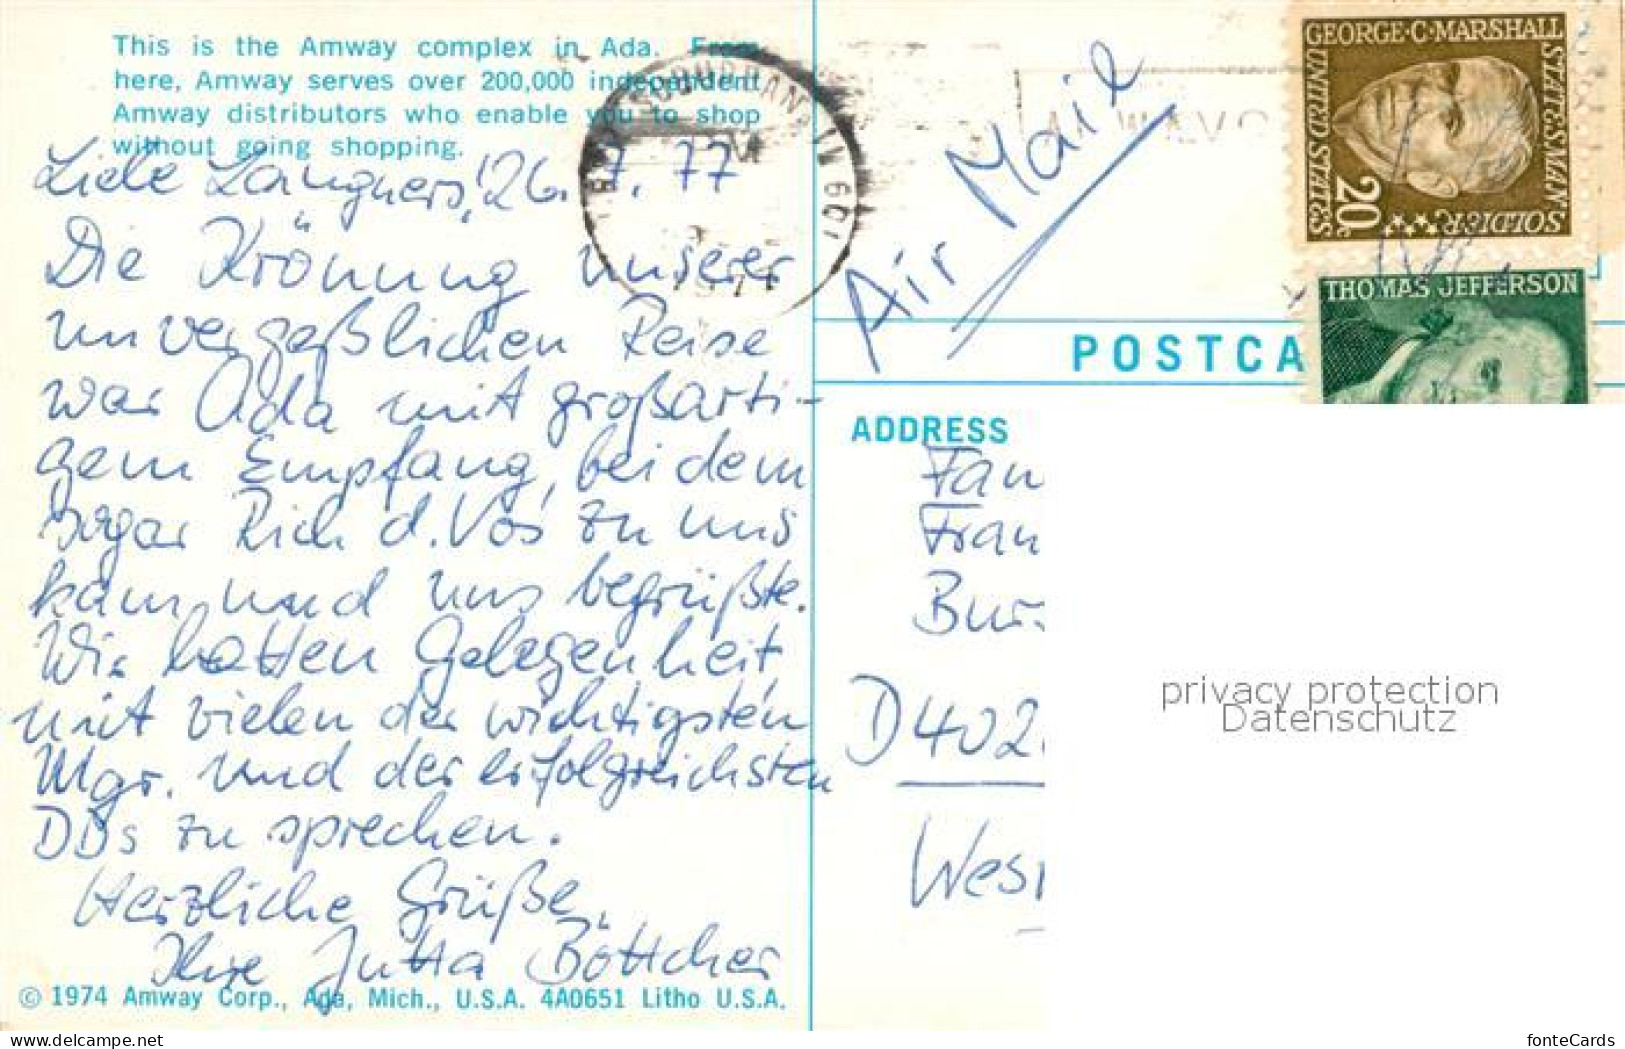 This is the Amway complex in Ada. From
here, Amway serves over 200,000 independent
Amway distributors who enable you to shop
without going shopping.
Liebe Langners, 26. 7. 77
Die Krönung unserer
unvergeßlichen Reise
war Ada mit großarti-
gem Empfang, bei dem
sogar Rich d. Vos zu uns
kam, und uns begrüßte.
Wir hatten Gelegenheit
mit vielen der wichtigsten
Mgr. und der erfolgreichsten
DDs zu sprechen.
Herzliche Grüße,
Ihre Jutta Böttcher
© 1974 Amway Corp., Ada, Mich., U.S.A. 4A0651 Litho U.S.A.
SUBURBAN, IL 601
1977
Air Mail
GEORGE·C·MARSHALL
UNITED STATES
STATESMAN
SOLDIER
20c
THOMAS JEFFERSON
POSTCA
ADDRESS
Fam
Fran
Bur
D 402
Wes
privacy protection
Datenschutz
www.delcampe.net
fonteCards